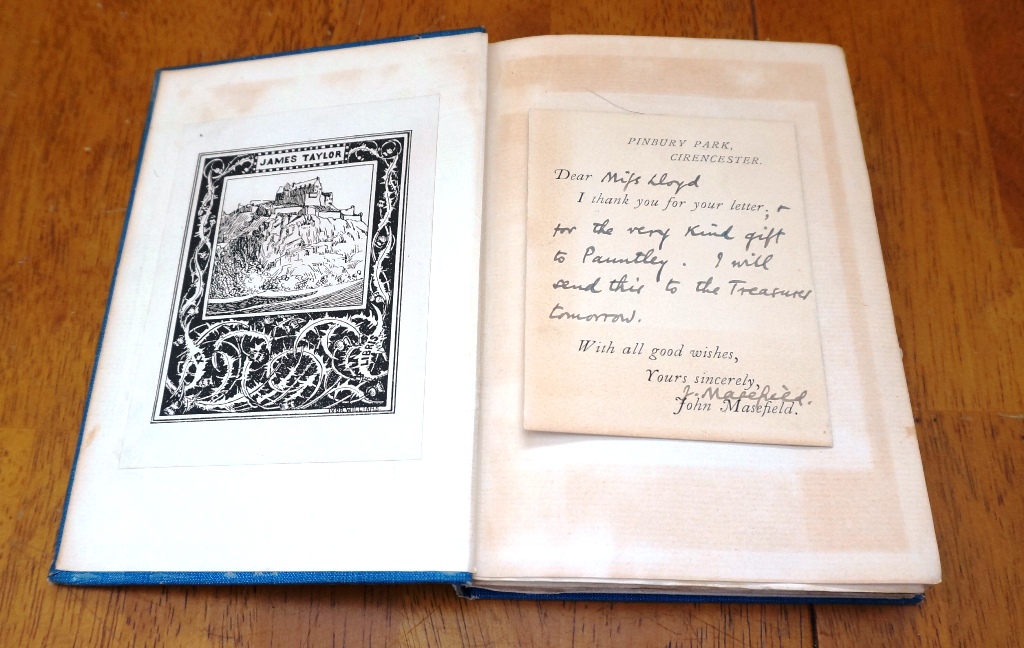 JAMES TAYLOR
IVOR WILLIAMS
PINBURY PARK,
CIRENCESTER.
Dear Miss Lloyd
I thank you for your letter; +
for the very kind gift
to Pauntley. I will
send this to the Treasurer
tomorrow.
With all good wishes,
Yours sincerely,
J. Masefield.
John Masefield.